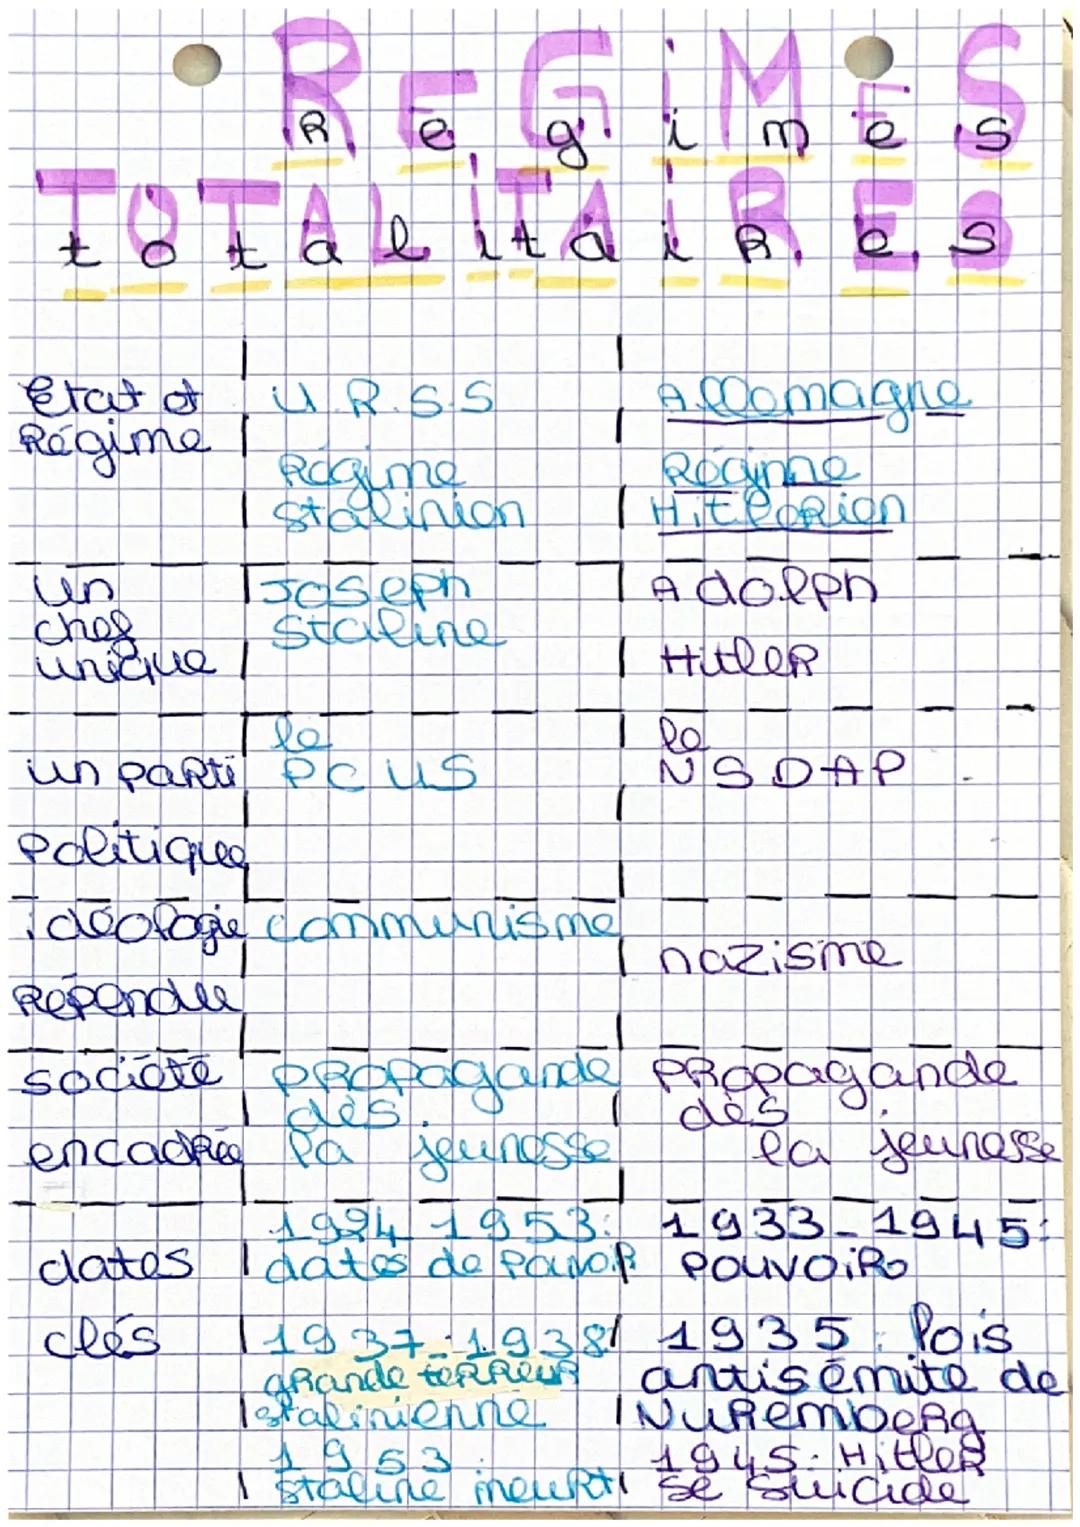 REGIMES
Regimes
TOTALITAIRES
totalitaires
Etat et
Régime
U.R.S.S
Régime
stalinien
Allemagne
Régime
Hitlerien
un
chef
unique
Joseph
Staline
Adolph
Hitler
un parti
Politique
le
PCUS
le
NSDAP
idéologie
Répendue
communisme
nazisme
société
encadrée
PROPagande
dès
la jeunesse
PROpagande
dès
la jeunesse
dates
clés
1924 1953:
dates de Pouvoir
1937-1938:
grande terreur
stalinienne
1953:
staline meurt
1933-1945:
Pouvoir
1935: lois
antisémite de
Nuremberg
1945: Hitler
se suicide